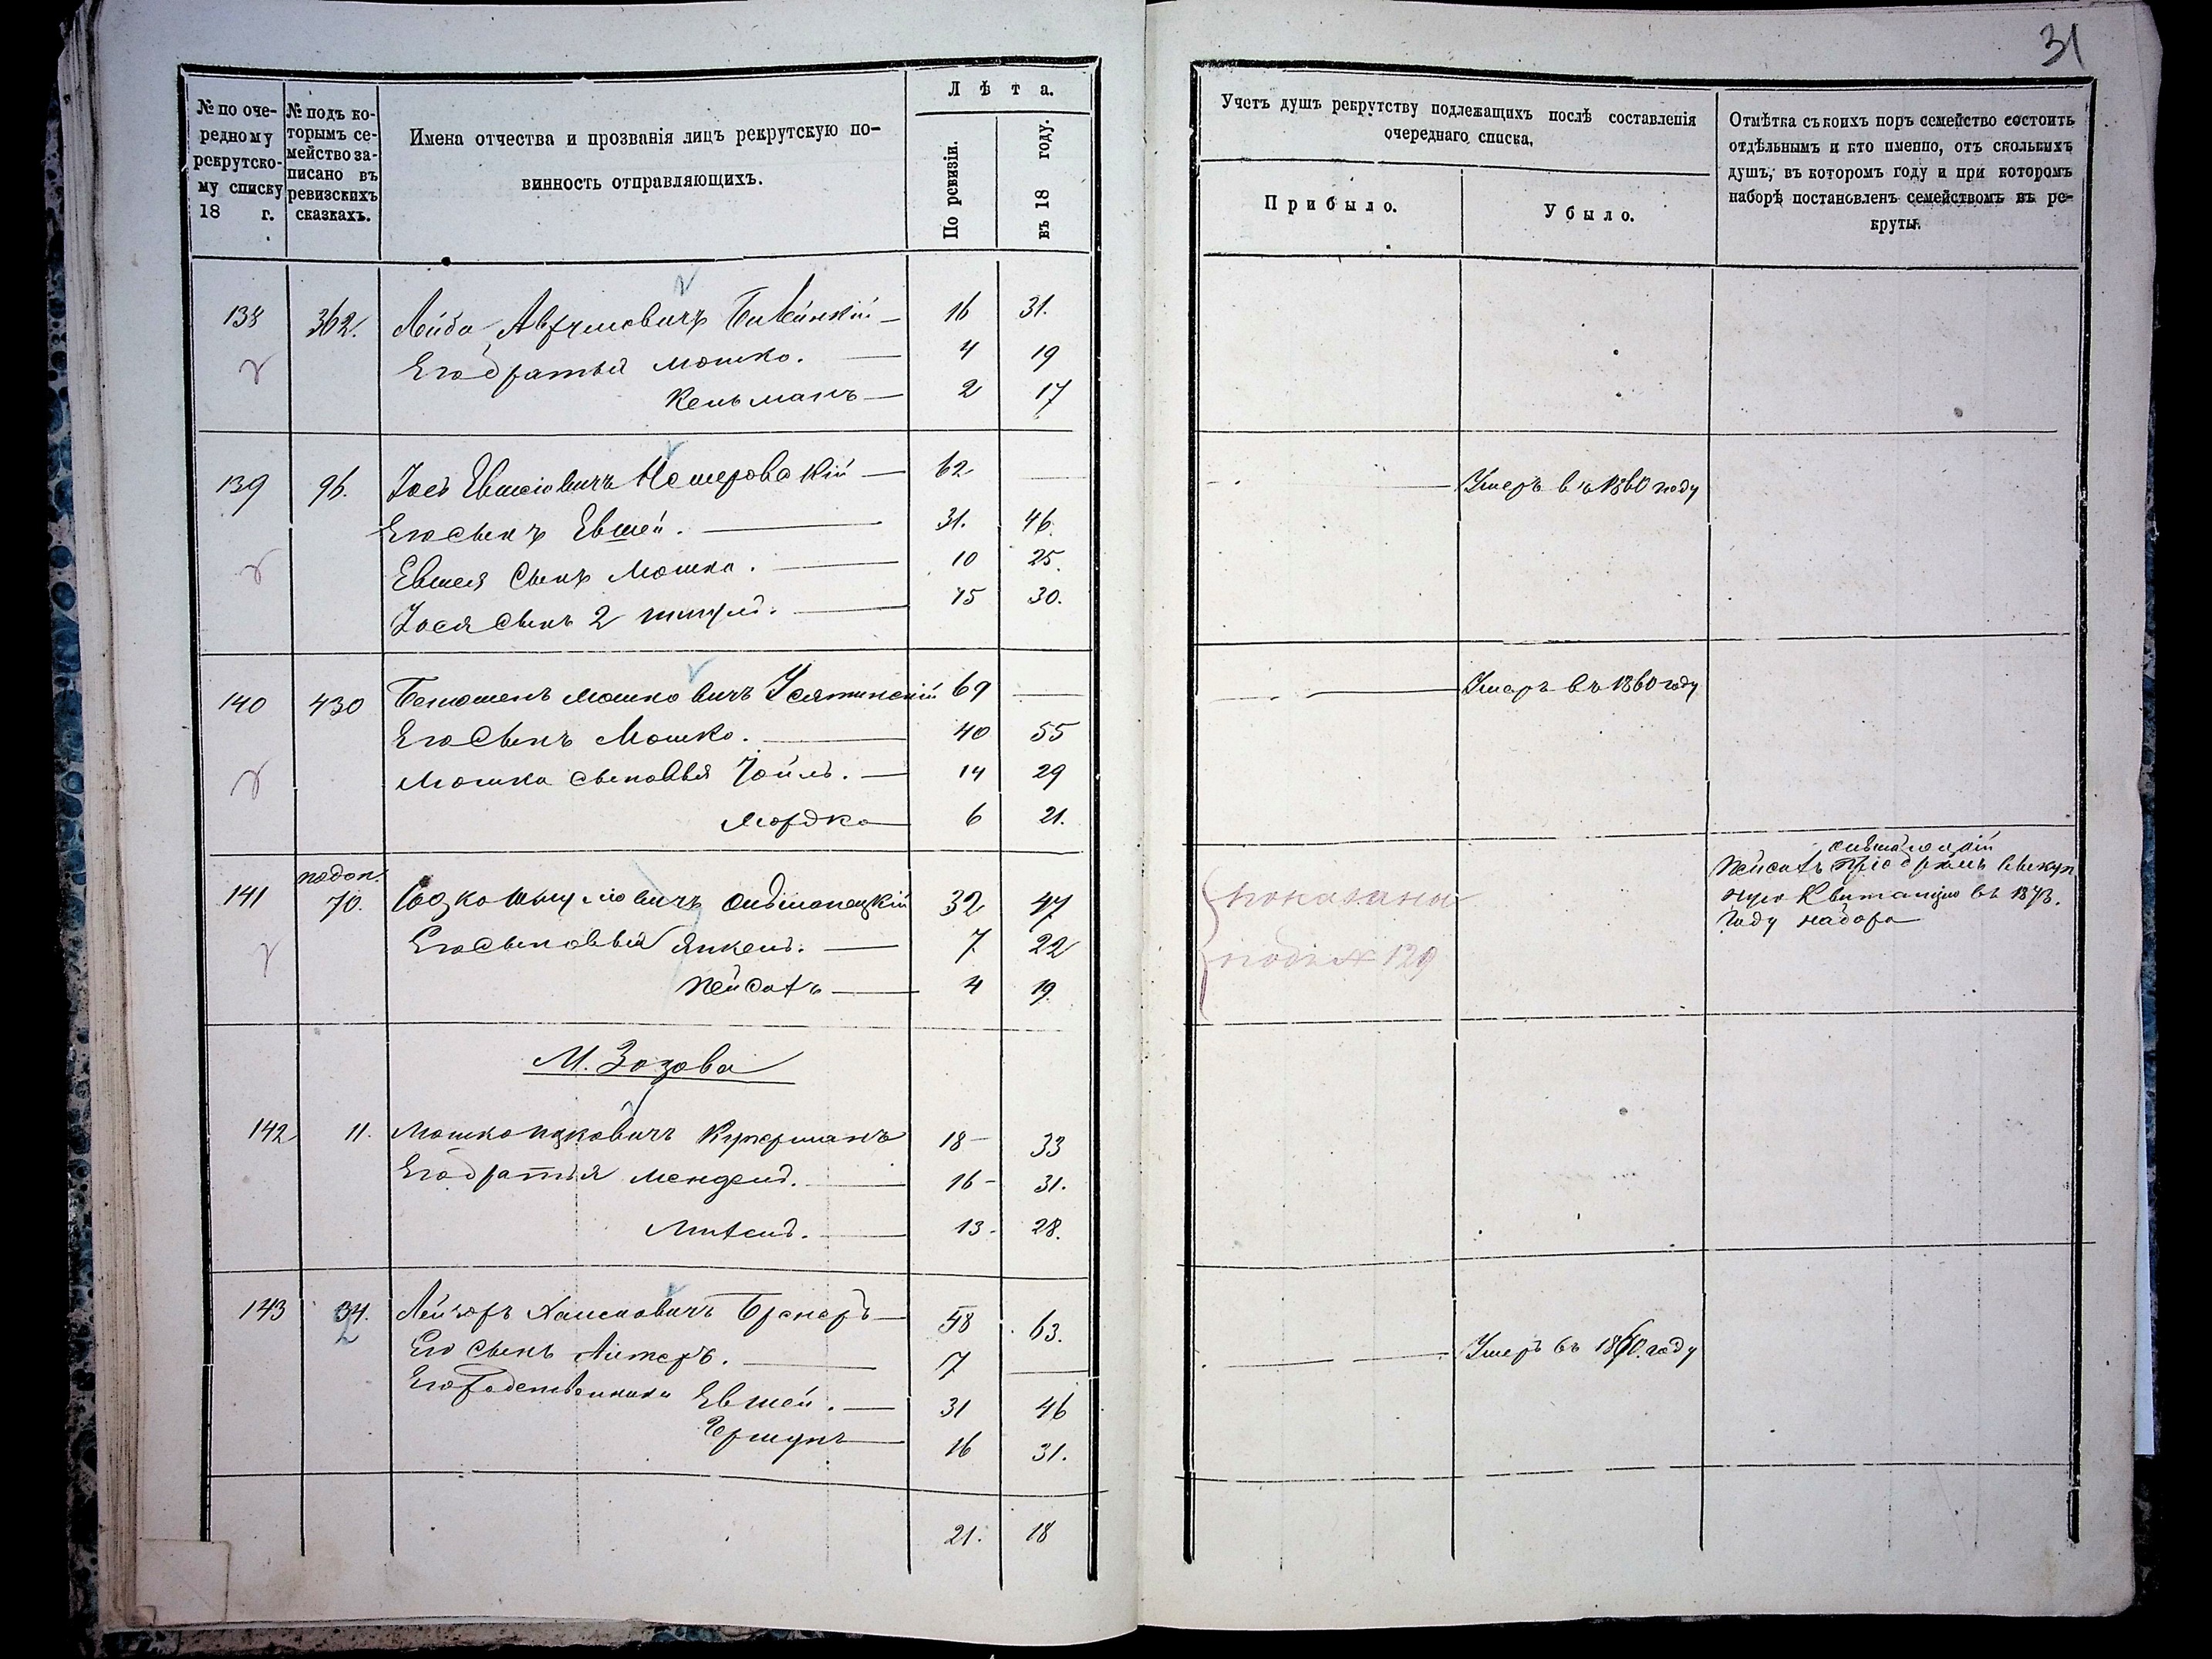 31
№ по оче-
редному
рекрутско-
му списку
18 г.
№ подъ ко-
торымъ се-
мейство за-
писано въ
ревизскихъ
сказкахъ.
Имена отчества и прозванія лицъ рекрутскую по-
винность отправляющихъ.
Лѣта.
По ревизіи.
въ 18 году.
Учетъ душъ рекрутству подлежащихъ послѣ составленія
очереднаго списка,
Прибыло.
Убыло.
Отмѣтка съ коихъ поръ семейство состоитъ
отдѣльнымъ и кто именно, отъ сколькихъ
душъ, въ которомъ году и при которомъ
наборѣ поставленъ семействомъ въ ре-
круты.
138 362. Лейба 16 31.
Его братья Мошко. 4 19
Кельманъ 2 17
139 96. Іось Евшіовичъ 62 Умеръ въ 1860 году
Его сынъ Евшей. 31. 46.
Евшея сынъ Мошко. 10 25.
Іося сынъ 2 15 30.
140 430 Мошковичъ 69 Умеръ въ 1860 году
Его сынъ Мошко. 40 55
Мошка сыновья 14 29
Мордко 6 21.
141 70. 32 47 показаны
Его сыновья Янкель. 7 22 подъ № 129
Пейсахъ 4 19
Пейсахъ
квитанцію въ 1873.
году набора
М. Зозова
142 11. Мошко Ицковичъ 18 33
Его братья Мендель. 16 31.
13 28.
143 34. Лейзоръ Хаимовичъ 58 63.
Его сынъ 7 Умеръ въ 1860. году
Его родственники Евшей. 31 46
Гершунъ 16 31.
21. 18